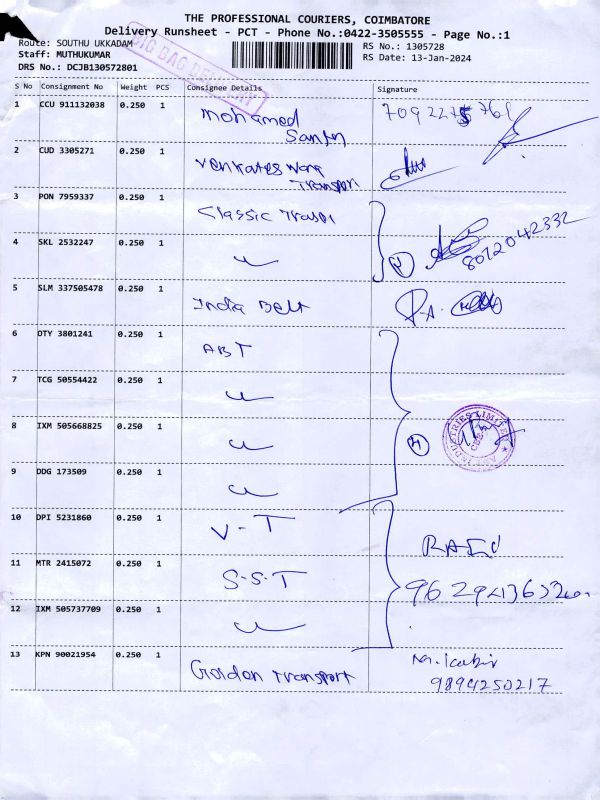 THE PROFESSIONAL COURIERS, COIMBATORE
Delivery Runsheet - PCT - Phone No.:0422-3505555 - Page No.:1
Route: SOUTHU UKKADAM
RS No.: 1305728
Staff: MUTHUKUMAR
RS Date: 13-Jan-2024
DRS No.: DCJB130572801
BIG BAG DELIVERY
S No Consignment No Weight PCS Consignee Details Signature
1 CCU 911132038 0.250 1 Mohamed
2 CUD 3305271 0.250 1 Venkateswara
Transport
3 PON 7959337 0.250 1 Classic
4 SKL 2532247 0.250 1 8012042332
5 SLM 337505478 0.250 1 India Belt
6 OTY 3801241 0.250 1 ABT
7 TCG 50554422 0.250 1
8 IXM 505668825 0.250 1
ABT INDUSTRIES LIMITED
CBE
9 DDG 173509 0.250 1
10 DPI 5231860 0.250 1 V-T
11 MTR 2415072 0.250 1 S.S.T
12 IXM 505737709 0.250 1
13 KPN 90021954 0.250 1 Golden Transport M. Kabir
9894250217